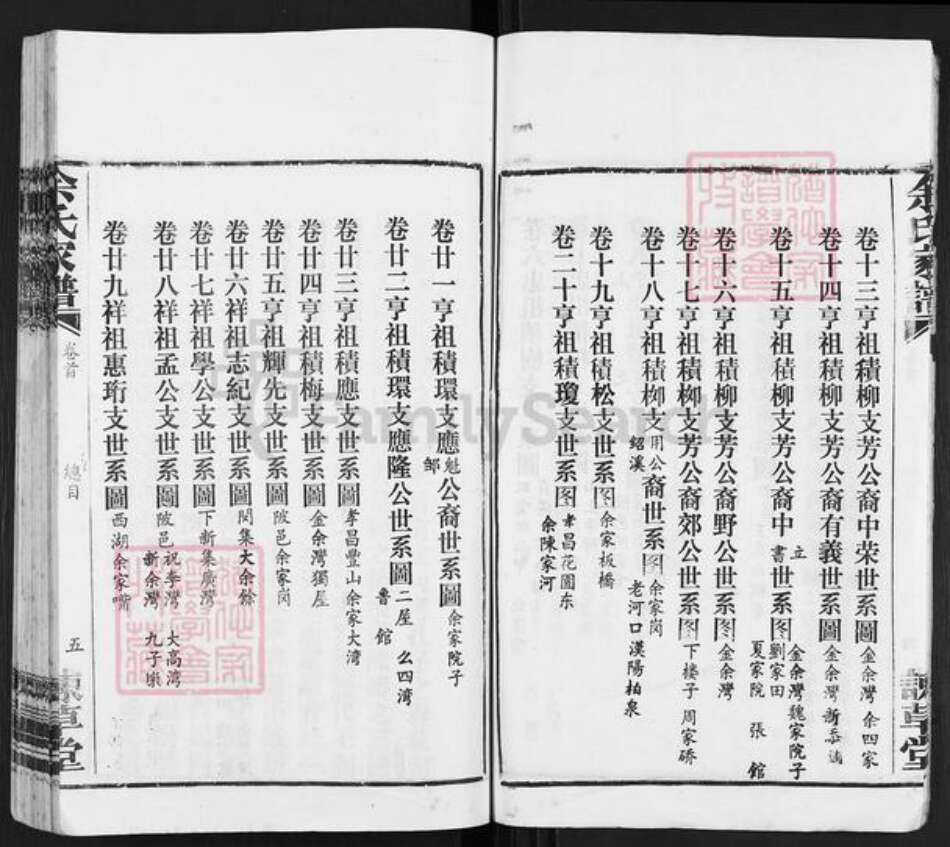 卷十三亨祖積柳支芳公裔中荣世系圖 金余灣 余四家
卷十四亨祖積柳支芳公裔有義世系圖 金余灣
卷十五亨祖積柳支芳公裔中立書世系图 金余灣魏家院子 劉家田 夏家院 張館
卷十六亨祖積柳支芳公裔野公世系图 金余灣
卷十七亨祖積柳支芳公裔郊公世系图 下樓子 周家硚
卷十八亨祖積柳支用公裔世系图 余家岗 老河口漢陽柏泉
卷十九亨祖積松支世系图 余家板橋
卷二十亨祖積瓊支世系图 孝昌花園东 余陳家河
余氏家譜
卷首
總目
五
卷廿一亨祖積環支應魁邹公裔世系圖 余家院子
卷廿二亨祖積環支應隆公世系圖 二屋 么四湾 魯館
卷廿三亨祖積應支世系圖 孝昌豐山余家大湾
卷廿四亨祖積梅支世系圖 金余灣獨屋
卷廿五亨祖輝先支世系圖 陂邑余家岗
卷廿六祥祖志紀支世系圖 閔集大余
卷廿七祥祖學公支世系圖 下新集廣灣
卷廿八祥祖孟公支世系圖 陂邑祝李灣 大高湾 新余灣 九子墩
卷廿九祥祖惠珩支世系圖 西湖余家嘴